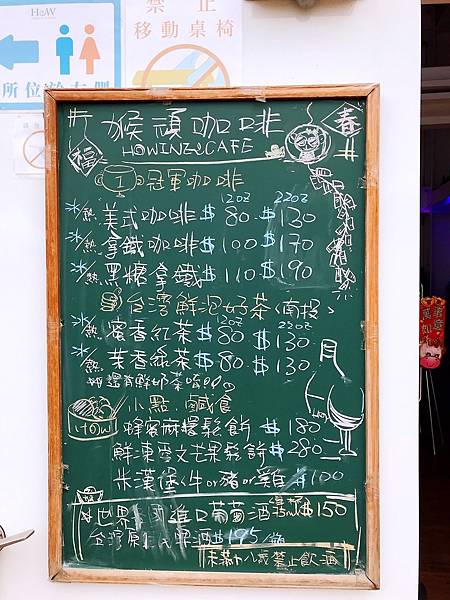 H&W
所位於右側
禁止
移動桌椅
春
福
猴頑咖啡
HOWINZ CAFE
冠軍咖啡
12oz 22oz
冰/熱 美式咖啡 $80 $130
冰/熱 拿鐵咖啡 $100 $170
冰/熱 黑糖拿鐵 $110 $190
台灣鮮泡好茶<南投>
12oz 22oz
冰/熱 蜜香紅茶 $80 $130
冰/熱 茉香綠茶 $80 $130
小點.鹹食
HOW
蜂蜜麻糬鬆餅 $180
鮮凍愛文芒果鬆餅 $280
米漢堡<牛or豬or雞 $100
世界 進口葡萄酒 $150
台灣 啤酒 $195/
未滿十八歲禁止飲酒